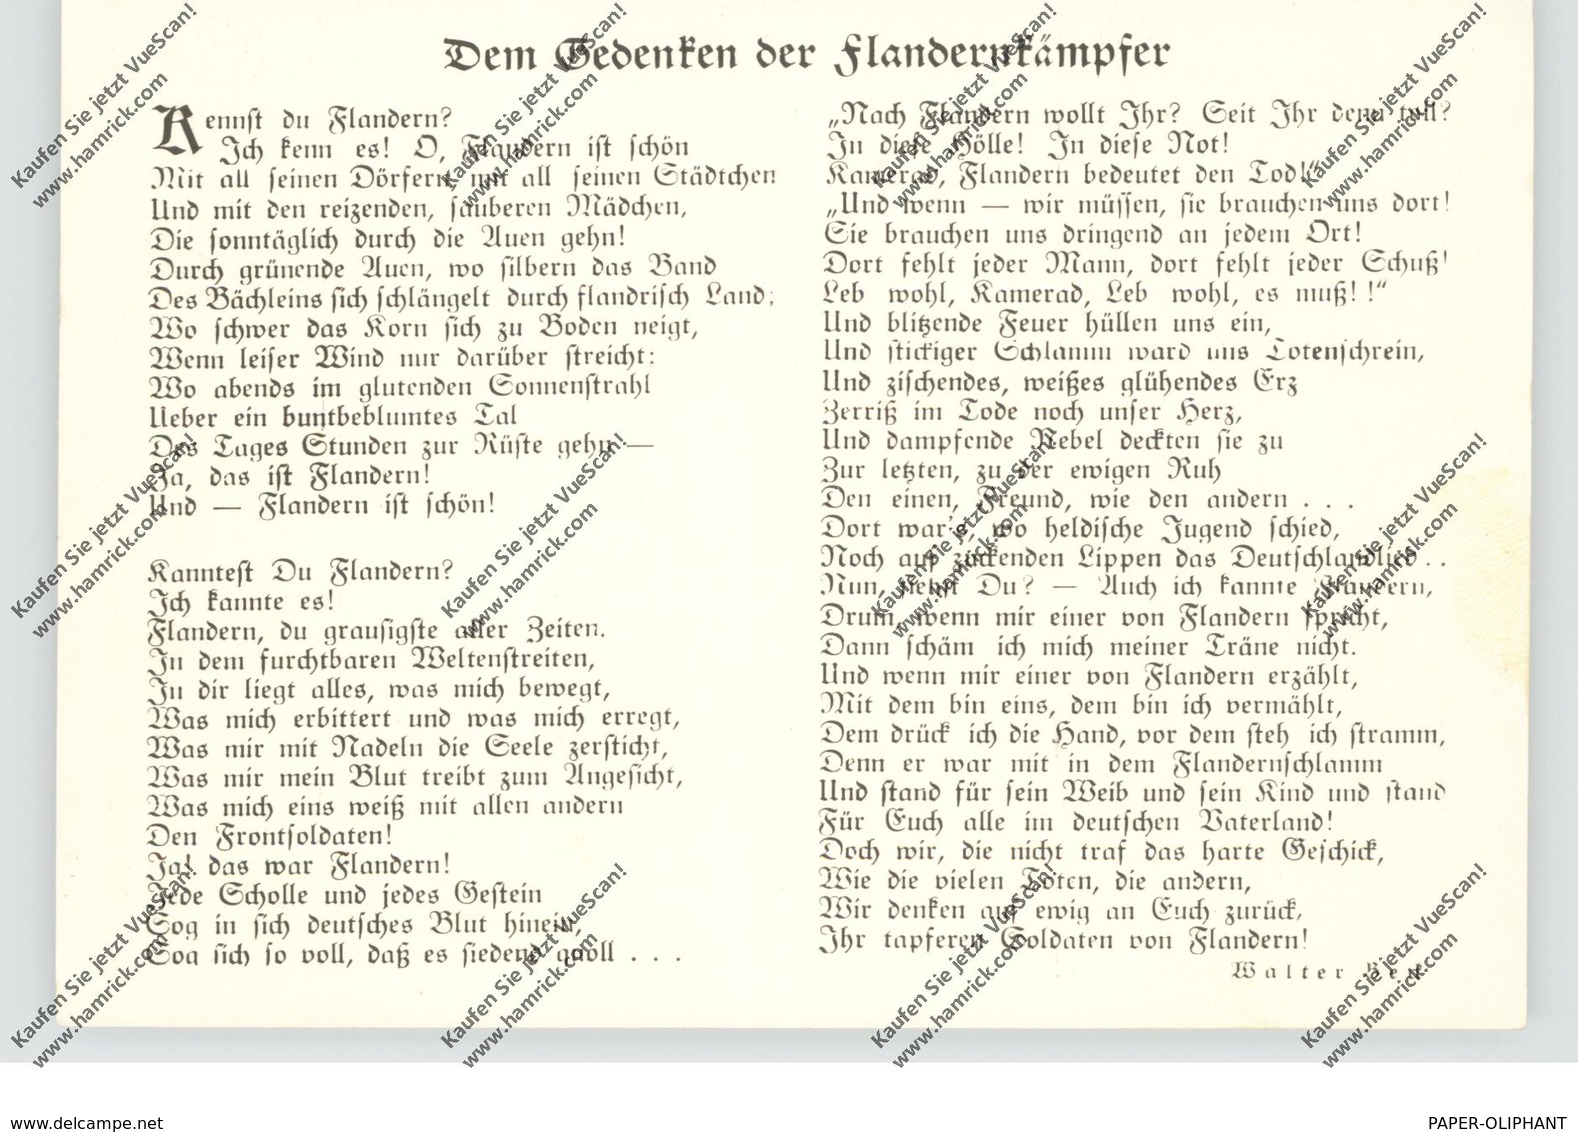 Dem Gedenken der Flandernkämpfer
Kennst du Flandern?
Ich kenn es! O, Flandern ist schön
Mit all seinen Dörfern, mit all seinen Städtchen
Und mit den reizenden, sauberen Mädchen,
Die sonntäglich durch die Auen gehn!
Durch grünende Auen, wo silbern das Band
Des Bächleins sich schlängelt durch flandrisch Land;
Wo schwer das Korn sich zu Boden neigt,
Wenn leiser Wind nur darüber streicht:
Wo abends im glutenden Sonnenstrahl
Ueber ein buntbeblumtes Tal
Des Tages Stunden zur Rüste gehn —
Ja, das ist Flandern!
Und — Flandern ist schön!
Kanntest Du Flandern?
Ich kannte es!
Flandern, du grausigste aller Zeiten.
In dem furchtbaren Weltenstreiten,
In dir liegt alles, was mich bewegt,
Was mich erbittert und was mich erregt,
Was mir mit Nadeln die Seele zersticht,
Was mir mein Blut treibt zum Angesicht,
Was mich eins weiß mit allen andern
Den Frontsoldaten!
Ja! das war Flandern!
Jede Scholle und jedes Gestein
Sog in sich deutsches Blut hinein,
Sog sich so voll, daß es siedend quoll . . .
„Nach Flandern wollt Ihr? Seit Ihr denn toll?
In diese Hölle! In diese Not!
Kamerad, Flandern bedeutet den Tod!“
„Und wenn — wir müssen, sie brauchen uns dort!
Sie brauchen uns dringend an jedem Ort!
Dort fehlt jeder Mann, dort fehlt jeder Schuß!
Leb wohl, Kamerad, Leb wohl, es muß! !“
Und blitzende Feuer hüllen uns ein,
Und stickiger Schlamm ward uns Totenschrein,
Und zischendes, weißes glühendes Erz
Zerriß im Tode noch unser Herz,
Und dampfende Nebel deckten sie zu
Zur letzten, zu der ewigen Ruh
Den einen, Freund, wie den andern . . .
Dort war's, wo heldische Jugend schied,
Noch auf zuckenden Lippen das Deutschlandlied . .
Nun, siehst Du? — Auch ich kannte Flandern,
Drum, wenn mir einer von Flandern spricht,
Dann schäm ich mich meiner Träne nicht.
Und wenn mir einer von Flandern erzählt,
Mit dem bin eins, dem bin ich vermählt,
Dem drück ich die Hand, vor dem steh ich stramm,
Denn er war mit in dem Flandernschlamm
Und stand für sein Weib und sein Kind und stand
Für Euch alle im deutschen Vaterland!
Doch wir, die nicht traf das harte Geschick,
Wie die vielen Toten, die andern,
Wir denken auf ewig an Euch zurück,
Ihr tapferen Soldaten von Flandern!
Walter
Kaufen Sie jetzt VueScan!
www.hamrick.com
Kaufen Sie jetzt VueScan!
www.hamrick.com
Kaufen Sie jetzt VueScan!
www.hamrick.com
Kaufen Sie jetzt VueScan!
www.hamrick.com
Kaufen Sie jetzt VueScan!
www.hamrick.com
Kaufen Sie jetzt VueScan!
www.hamrick.com
Kaufen Sie jetzt VueScan!
www.hamrick.com
Kaufen Sie jetzt VueScan!
www.hamrick.com
Kaufen Sie jetzt VueScan!
www.hamrick.com
Kaufen Sie jetzt VueScan!
www.hamrick.com
Kaufen Sie jetzt VueScan!
www.hamrick.com
Kaufen Sie jetzt VueScan!
www.hamrick.com
www.delcampe.net
PAPER-OLIPHANT